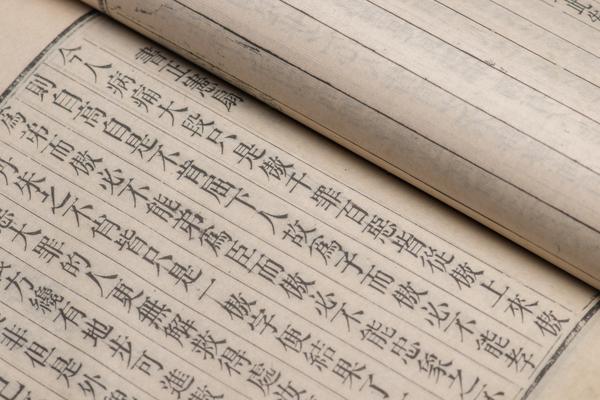 書正憲扇
今人病痛大段只是傲千罪百惡皆從傲上來傲
則自高自是不肯屈下人故為子而傲必不能孝
為弟而傲必不能弟為臣而傲必不能忠象之不
丹朱之不肖皆只是一傲字便結果了
惡大罪的人更無解救得處汝
方纔有地步可進傲
非但是外
己